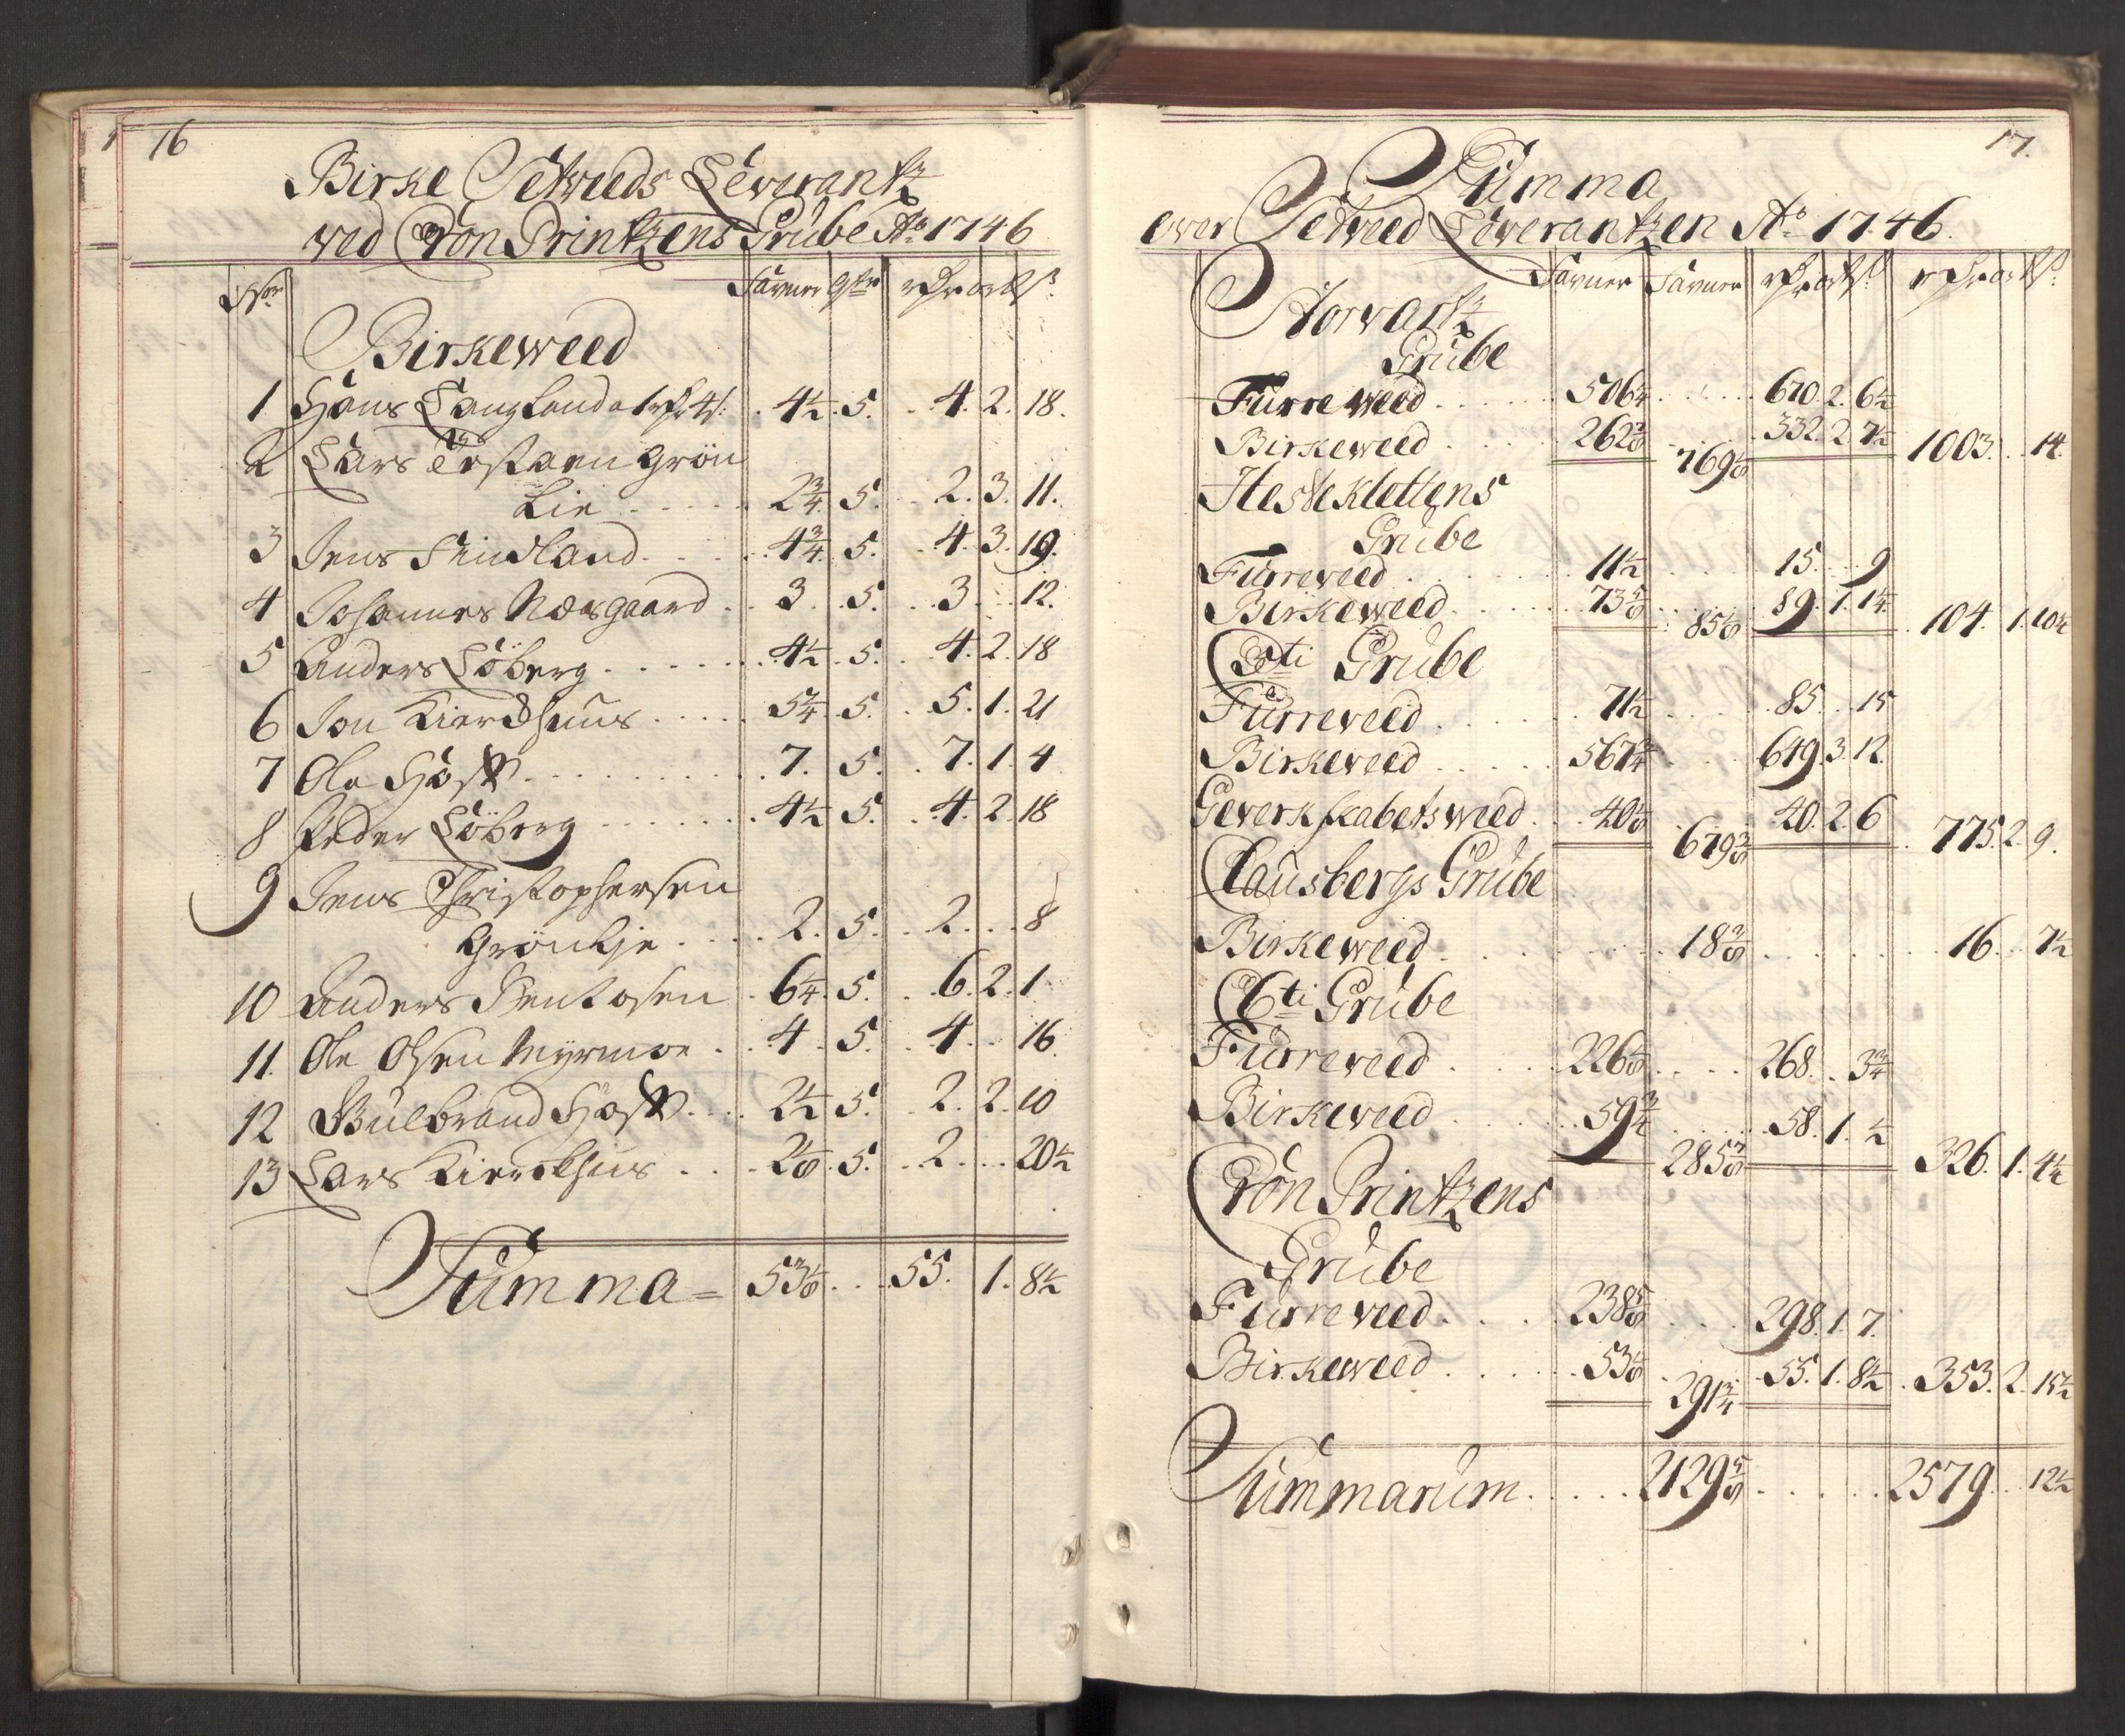 16
Birke Setweeds Leverantz
wed Cron Printzens Grube Ao 1746
Nor Favner qtr rdr ort s
Birkeweed
1 Hans Langland a 1 rdr 4 s: 4 1/2 . 5. 4. 2. 18.
2 Lars Grön
Lie 2 3/4 5. 2. 3. 11.
3 Jens Sindland 4 3/4 5. 4. 3. 19.
4 Johannes Næsgaard 3 . 5. 3 12.
5 Anders Löberg 4 1/2 . 5. 4. 2. 18
6 Jon Kierkhuus 5 1/4 5. 5. 1. 21
7 Ola Høst 7. 5. 7. 1. 4
8 Peder Löberg 4 1/2 5. 4. 2. 18
9 Jens Christophersen
Grönlje 2. 5. 2 8
10 Anders Bentosen 6 1/4 5. 6. 2. 1
11. Ole Olsen Myrmoe 4 . 5. 4. 16.
12 Gulbrand Høst 2 1/2 5. 2. 2. 10
13 Lars Kierckhus 2 1/8 . 5. 2 20 1/2
Summa = 53 1/8 55. 1. 8 1/2
17.
Summa
over Setweed Leverantzen Ao 1746.
Favner Favner rdr ort s. rdr ort s.
Storvartz
Grube
Furreweed 506 3/4 670. 2. 6 1/2
Birkeweed 262 3/8 769 1/8 332. 2. 7 1/2 1003. 14.
Hesteklettens
Grube
Furreweed 11 1/2 15. 9
Birkeweed 73 5/8 85 1/8 89. 1. 1 1/4 104. 1. 10 1/4
3ti Grube
Furreweed 71 1/2 85. 15
Birkeweed 567 3/4 649. 3. 12.
Gewerkskabetsweed 40 1/8 679 3/8 40. 2. 6 775. 2. 9.
Clausbergs Grube
Birkeweed 18 3/8 16. 7 1/2
6ti Grube
Furreweed 226 1/8 268. 3 3/4
Birkeweed 59 3/4 285 7/8 58. 1. 1/2 326. 1. 4 1/4
Cron Printzens
Grube
Furreweed 238 5/8 298. 1. 7.
Birkeweed 53 1/8 291 3/4 55. 1. 8 1/2 353. 2. 15 1/2
Summarum 2129 5/8 2579 12 1/2